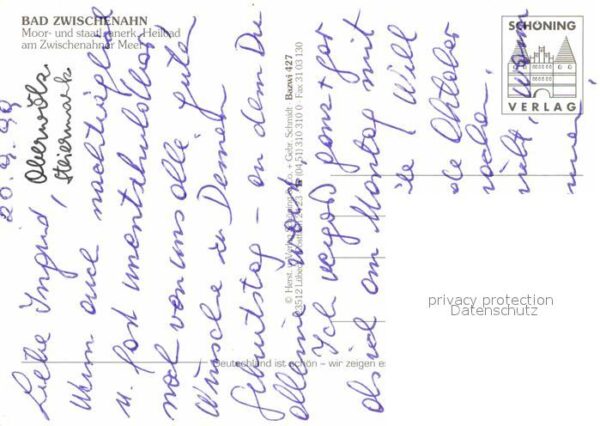 BAD ZWISCHENAHN
Moor- und staatl. anerk. Heilbad
am Zwischenahner Meer
SCHÖNING
VERLAG
20.9.99
Oberwölz
Steiermark
Liebe Ingrid,
Wenn auch nachträglich
u. fast unentschuldbar
noch von uns alle guten
Wünsche zu Deinem
Geburtstag – an dem Du
alleine warst
Ich vergaß ganz + gar
als ich am Montag mit
Will
die Oktober
nicht, wann
© Herst. Schöning & Co. + Gebr. Schmidt Bazwi 427
23512 Lübeck (04 51) 310 310 0 Fax 31 03 130
Deutschland ist schön – wir zeigen es
privacy protection
Datenschutz